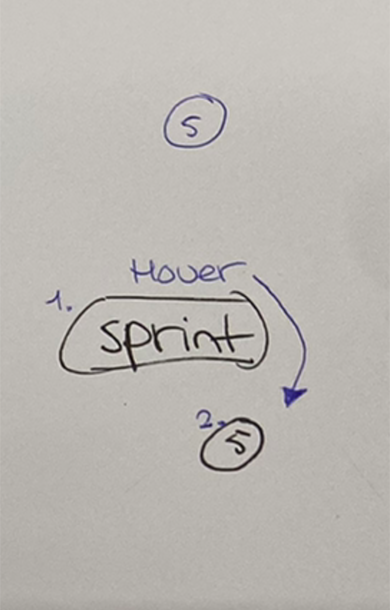 5
Hover
1.
sprint
2.
5